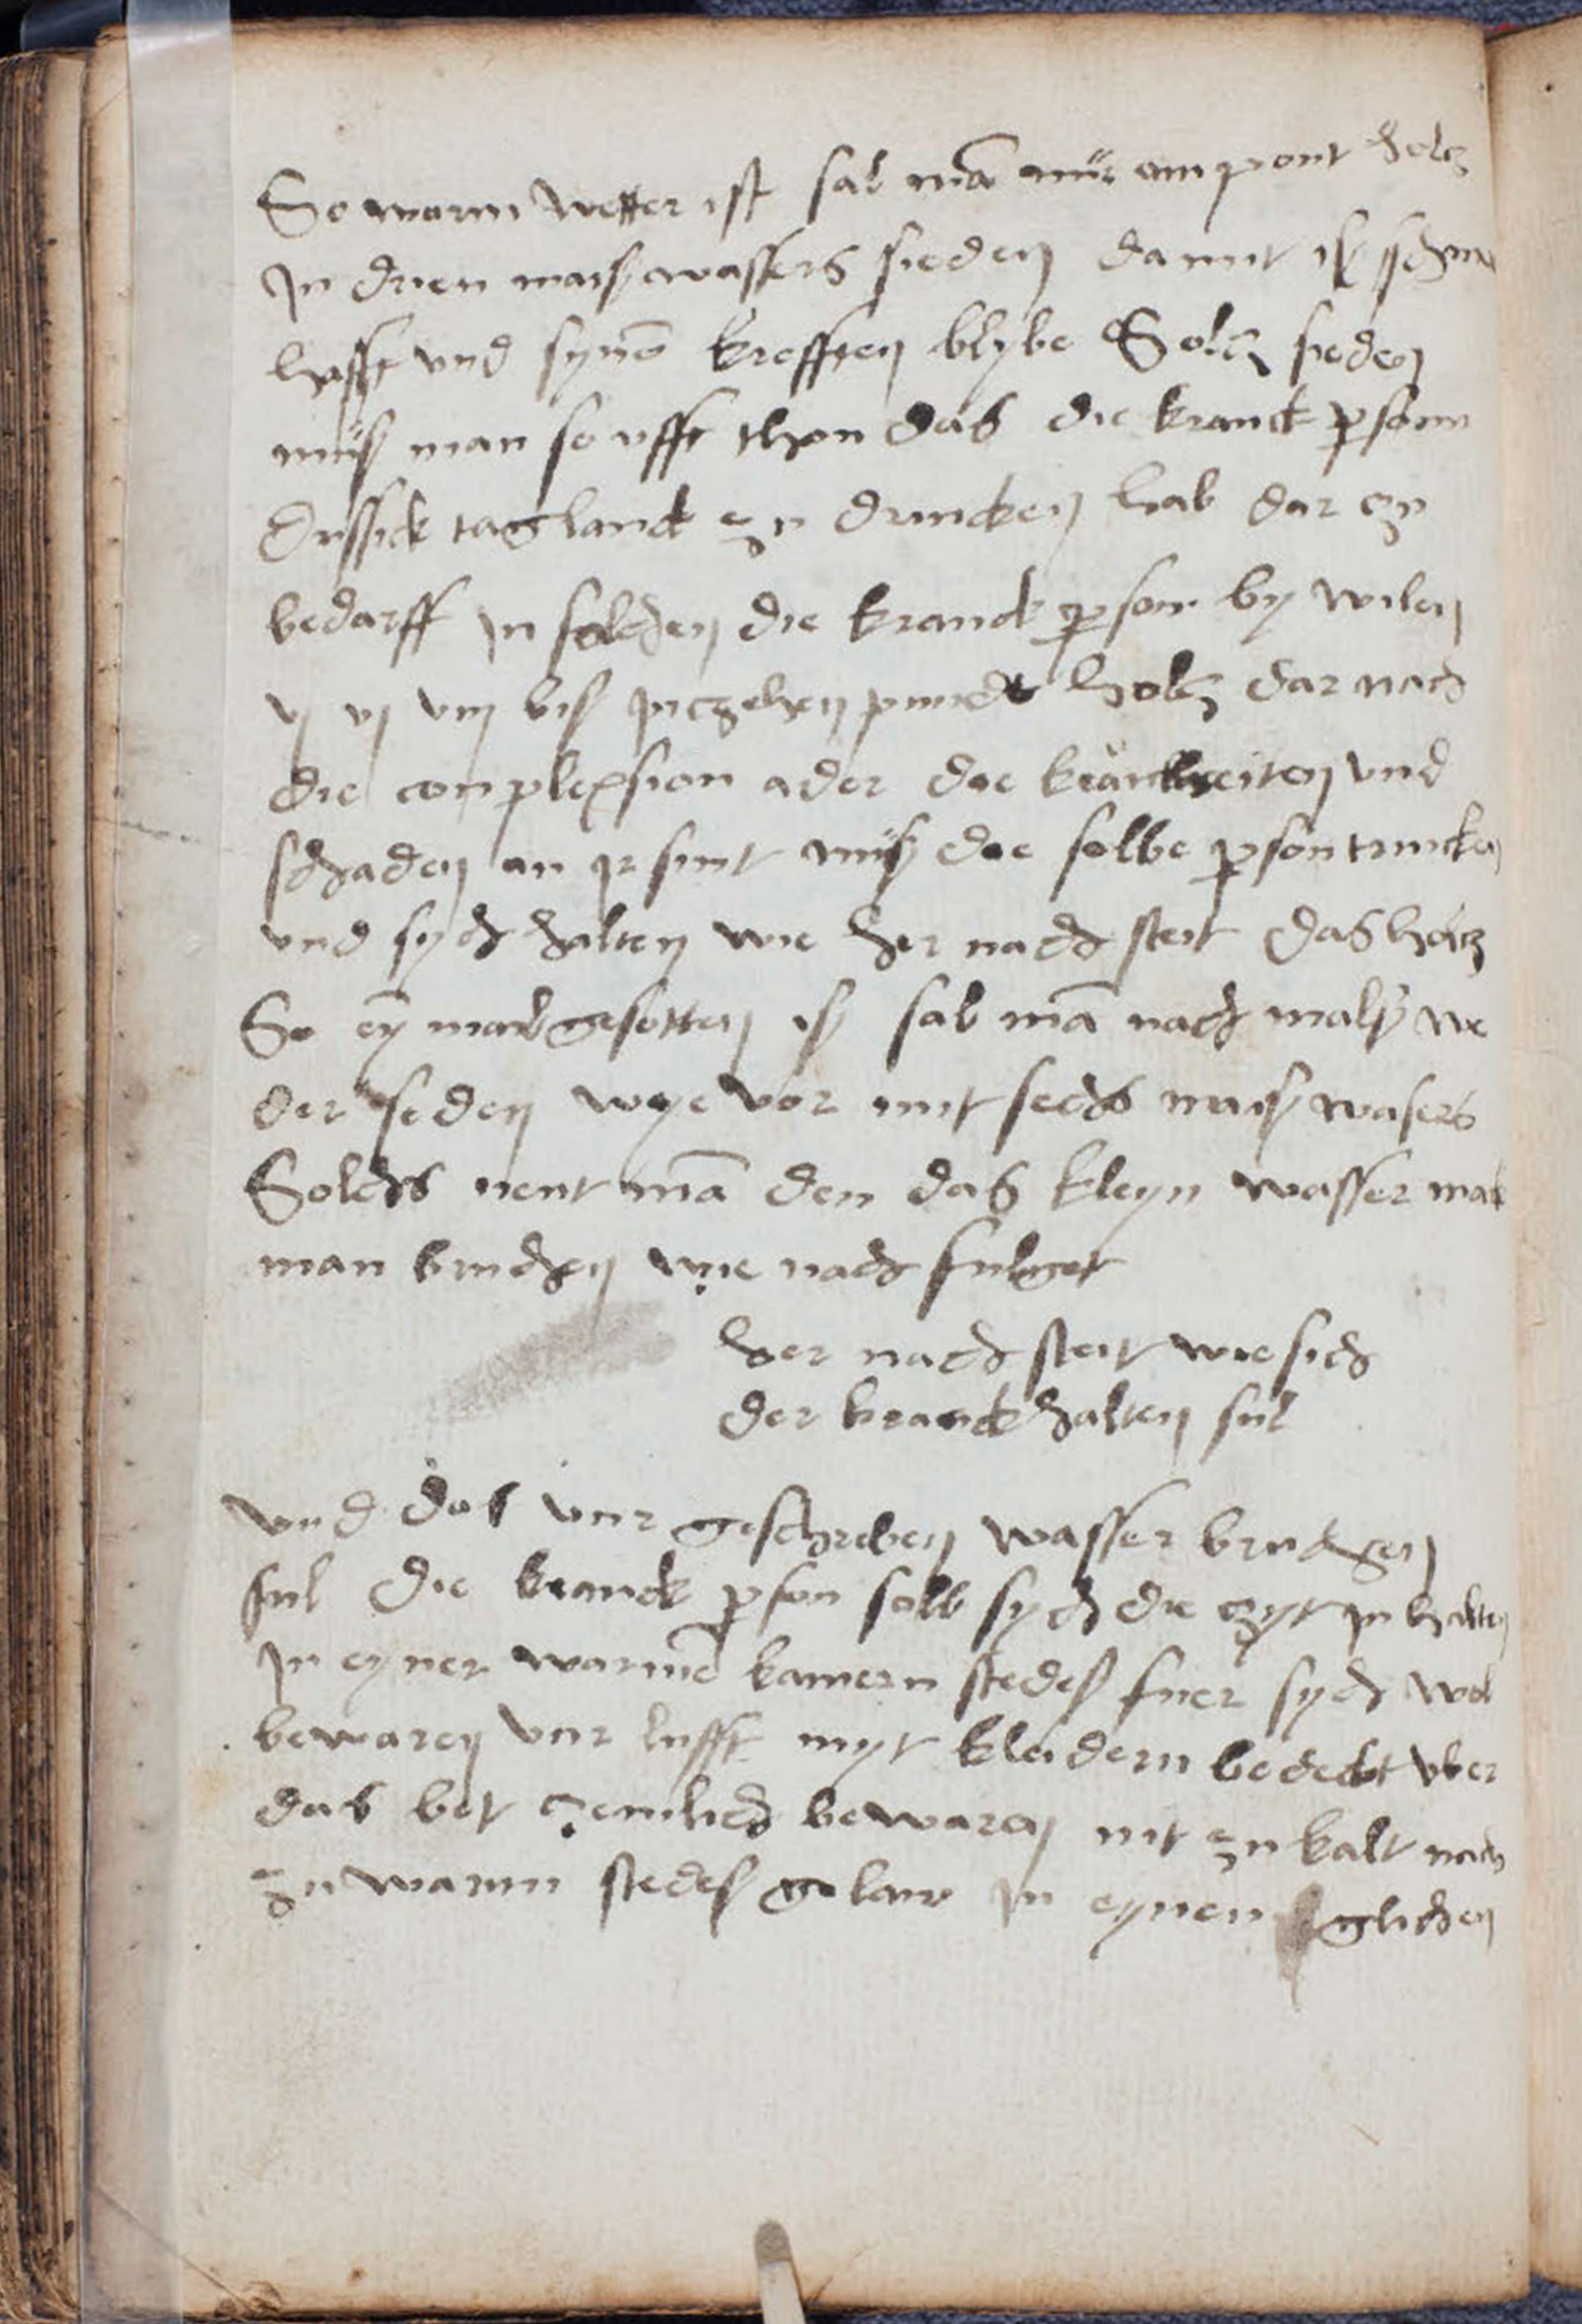 So warm wetter ist sal mā nür ein pont holtz
In drien mais wassers sieden damit is schma
hafft vnd synē krefften blybe Solch sieden
müs man so ufft thon das die kranck pson
drissick tag lanck zu drincken hab dar zu
bedarff in solchen die kranck pson by wilen
v vj viij bis in zehen pundt holtz dar nach
die complexsion ader die kranckheiten vnd
schaden an ir sint müs die selbe pson trincken
vnd sych halten wie her nach steit das holtz
So ey mael gesotten is sal mā nach mals we
der sieden wye vor mit sechs mais wasers
Solchs nent mā den das kleyn wasser mak
man bruchen wie nach fulget
her nach steit wie sich
der kranck halten sul
vnd das vur geschreben wasser bruchen
sul die kranck pson sall sych die zyt in halten
In eyner warmē kamern stedes fuer sych wol
bewaren vur lufft myt kleidern bedeckt vber
das bet zemlich bewaren nit zu kalt nach
zu warm stedes gelaw in eynen glichen